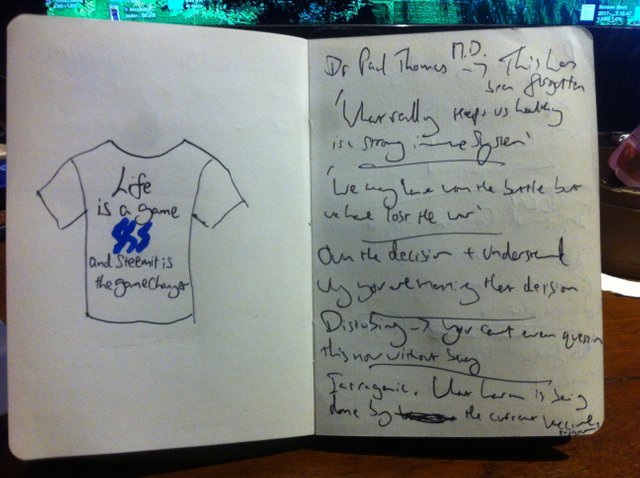 Life
is a game
and Steemit is
the game changer
Dr Paul Thomas M.D. → This has
been forgotten
'What really keeps us healthy
is a strong immune system'
'We may have won the battle but
we have lost the war'
Own the decision + understand
why you're making that decision
Disturbing → you can't even question
this now without being
Iatrogenic. What harm is being
done by the current vaccines